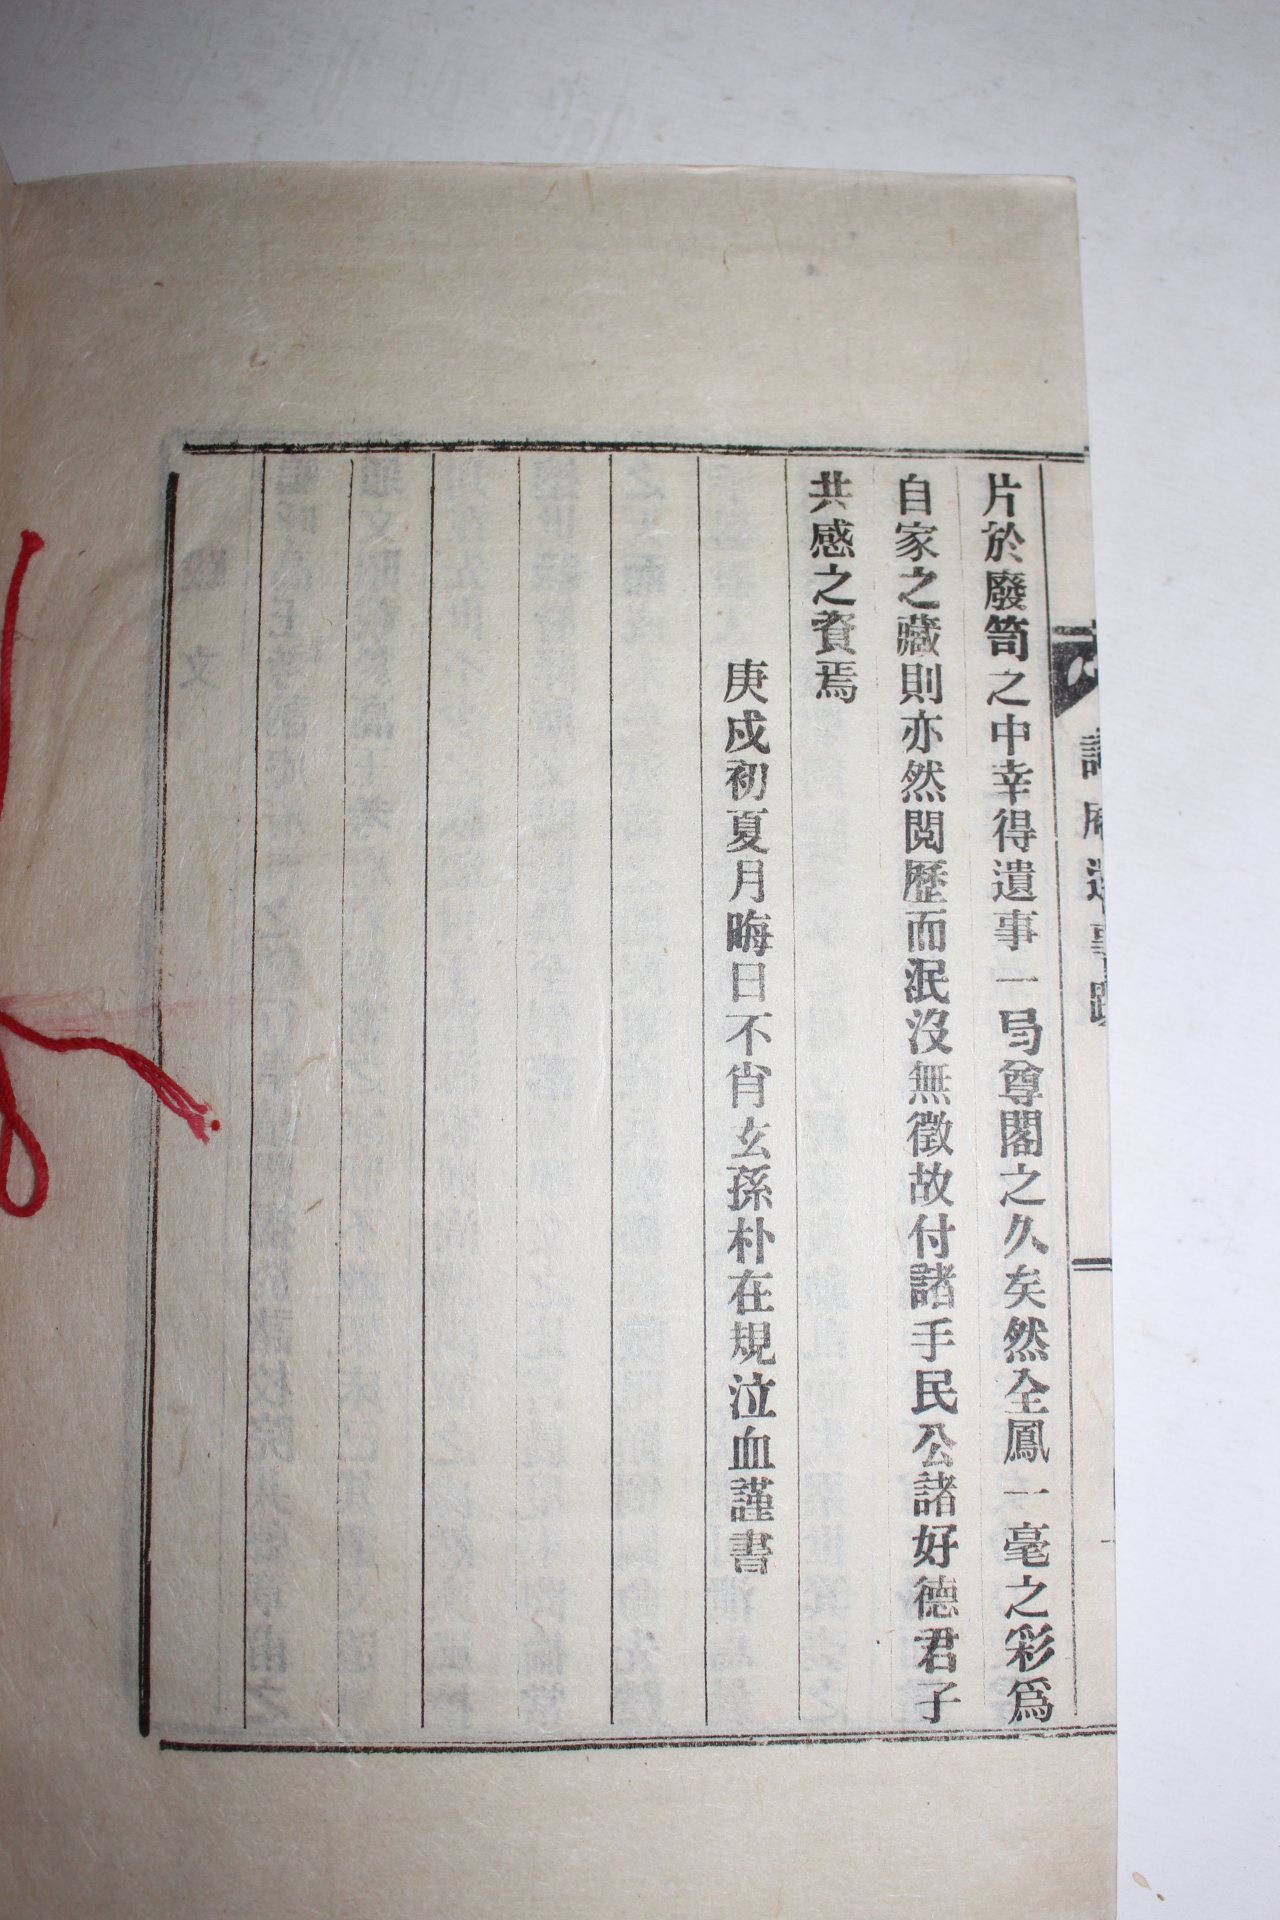 片於廢笥之中幸得遺事一局尊閣之久矣然全鳳一毫之彩爲
自家之藏則亦然閱歷而泯沒無徵故付諸手民公諸好德君子
共感之資焉
庚戍初夏月晦日不肖玄孫朴在規泣血謹書